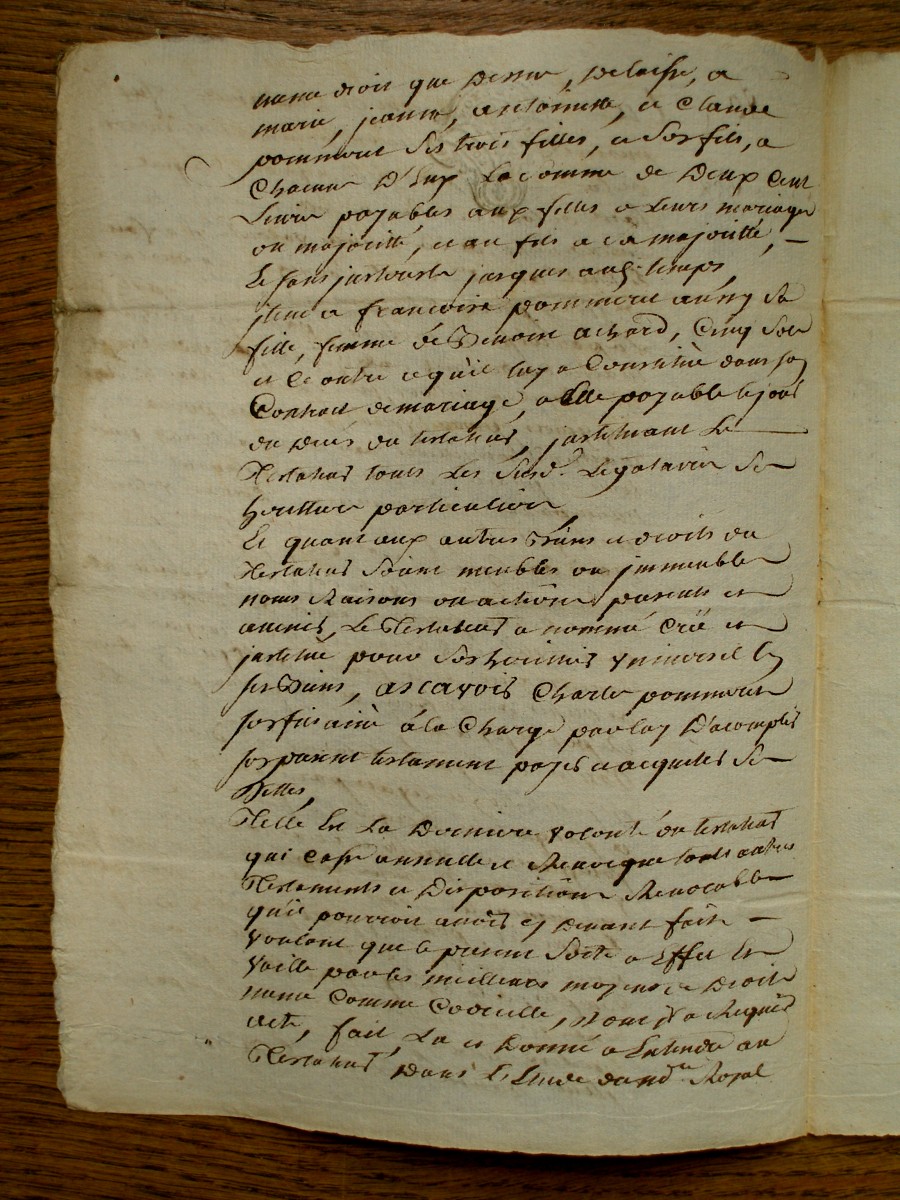 meme droit que dessus, delaisse, a
marie, jeanne, antoinette, et Claude
pommerut ses trois filles, et son fils, a
Chacun D'Eux La somme de Deux Cent
livres payables aux filles a Leurs mariages
ou majorité, et au fils a sa majorité,
Et sans jusques aud. temps,
Item a francoise pommerut aussy sa
fille, femme de Benoit achard, Cinq sols
et Ce outre ce qu'il luy a Constitué dans son
Contrat de mariage, a Elle payable le jour
du deces du testateur, instituant Le
Testateur touts Les susd. Legataires ses
heritiers particuliers
Et quant aux autres Biens et droits du
Testateur soient meubles ou immeubles
noms Raisons ou actions presents et
avenir, Le Testateur a nommé Créé et
institué pour son heritier universel en
ses Biens, ascavoir Charles pommerut
son fils ainé à la Charge par luy D'acomplir
son present testament payer et acquiter ses
Dettes,
Telle Est La Derniere volonté du testateur
qui Casse annulle et Revoque touts autres
Testaments et Dispositions Revocables
qu'il pourroit avoir cy Devant fait
voulant que le present sorte a Effet Et
vaille par les meilleurs moyens de Droit
meme Comme Codicille, Dont il a Requis
acte, fait, Lu et Donné a Entendre au
Testateur Dans L'Etude dud. no.re Royal